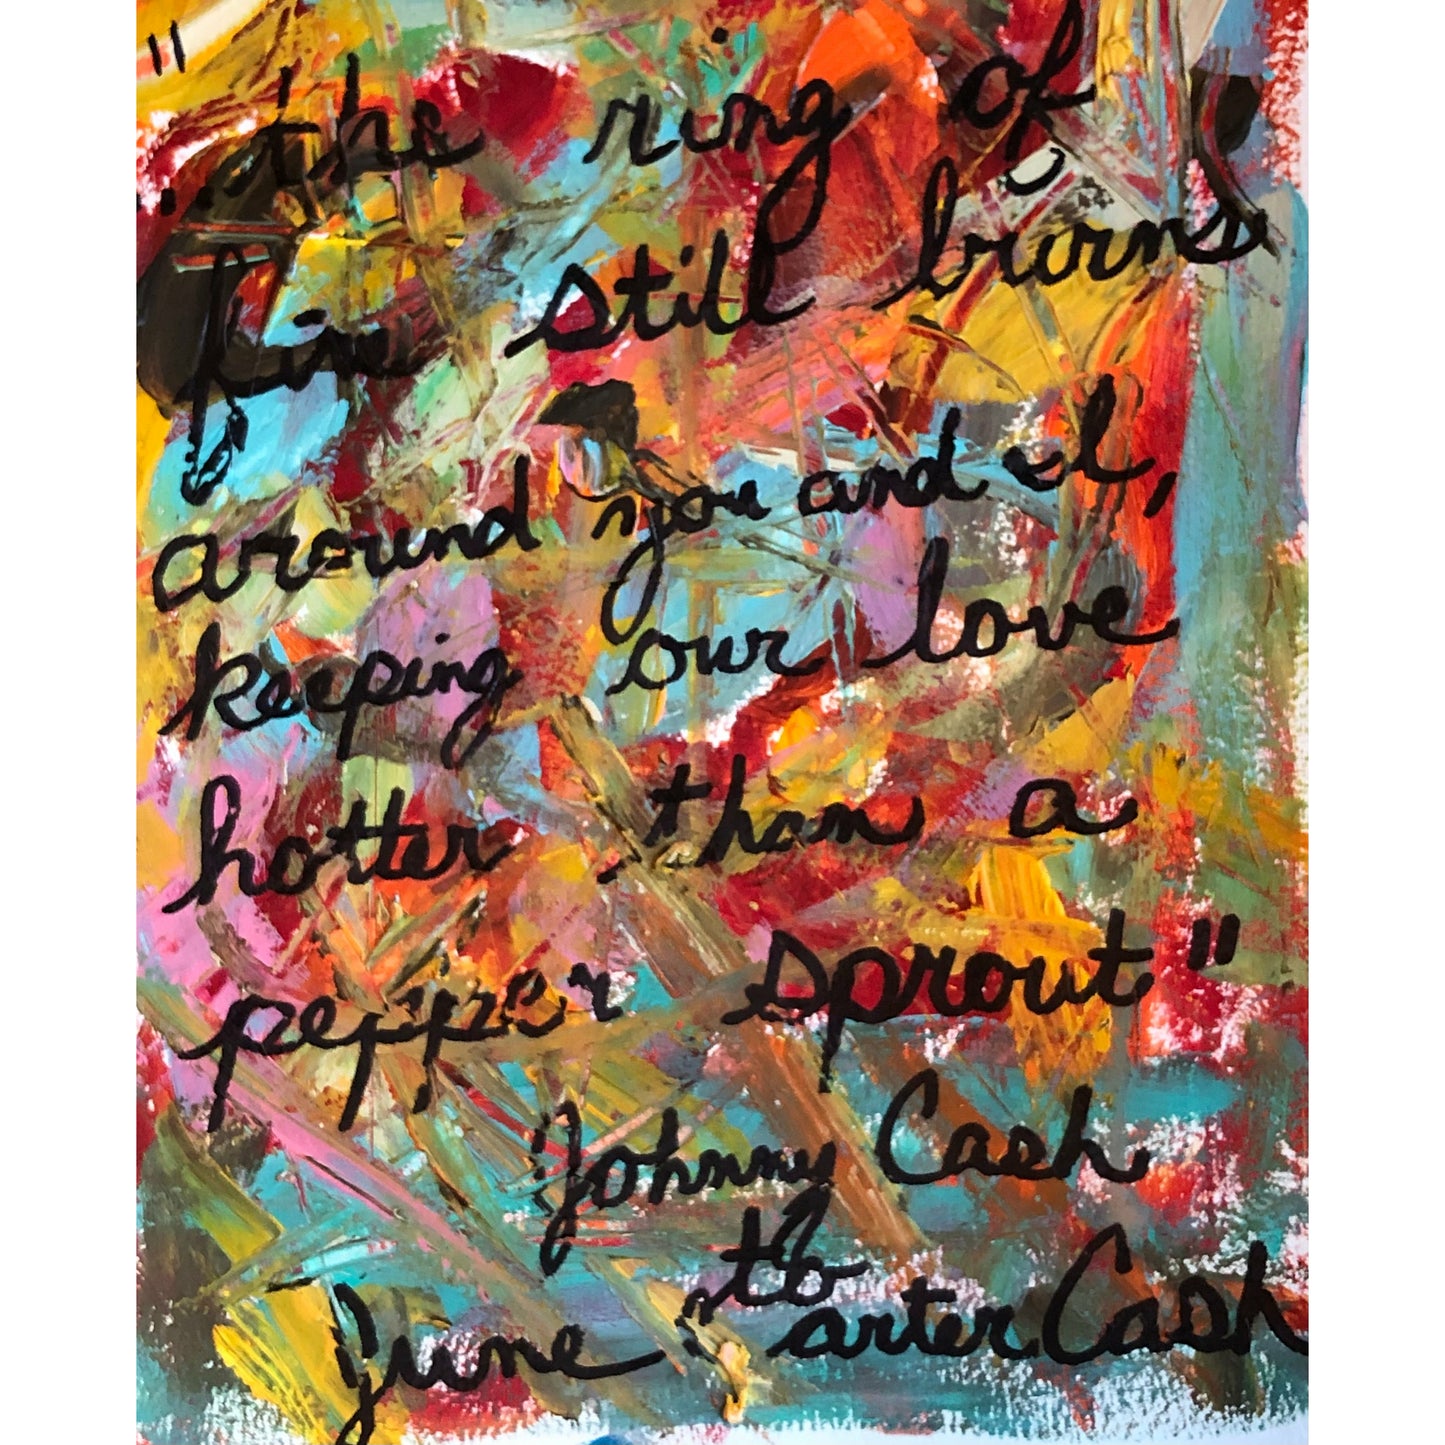 "...the ring of
fire still burns
around you and I,
keeping our love
hotter than a
pepper sprout"
Johnny Cash
to
June Carter Cash